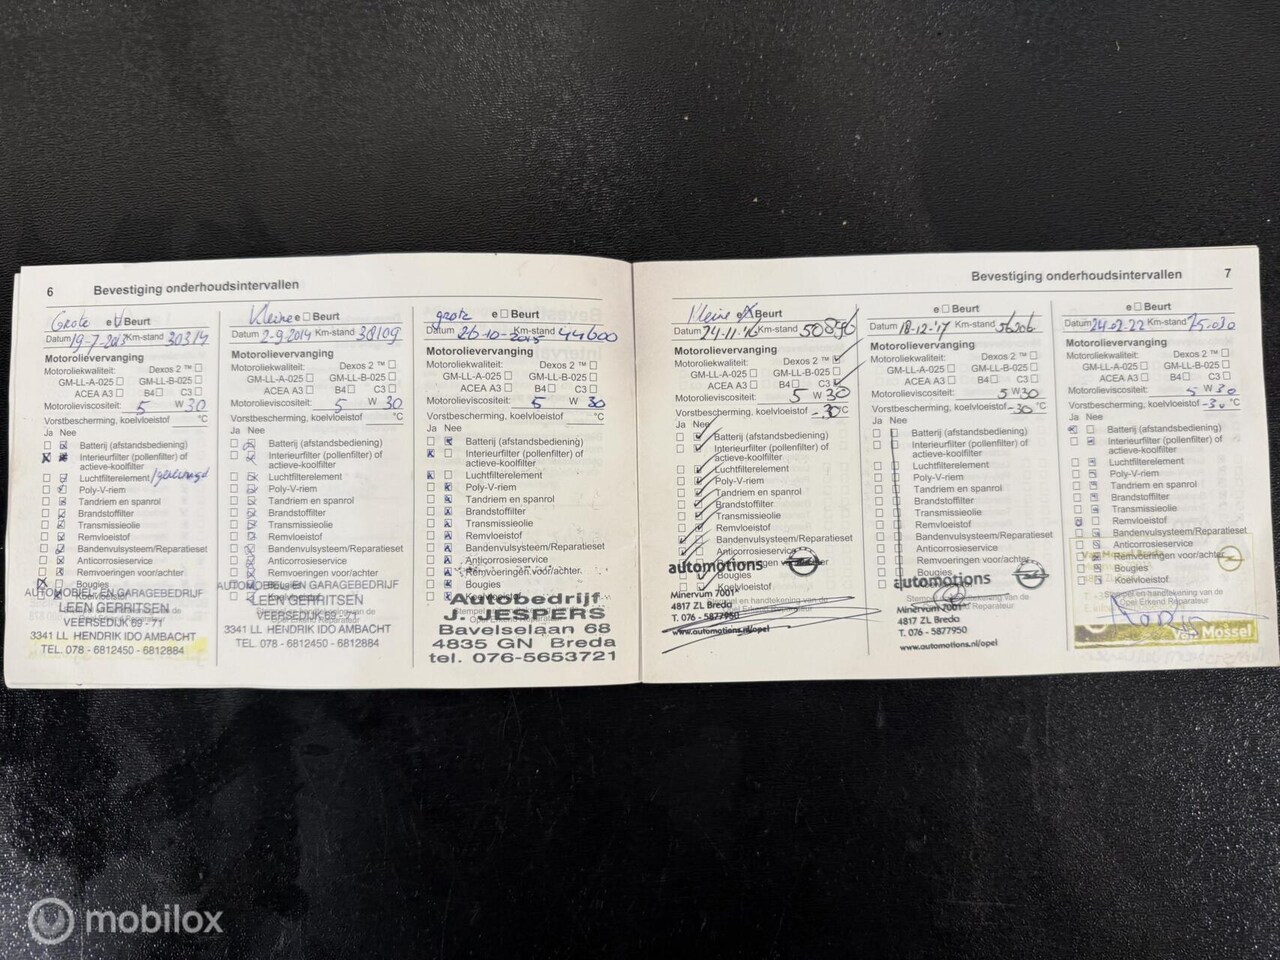 6 Bevestiging onderhoudsintervallen
Grote e Beurt
Datum 19-7-2013 Km-stand 30314
Motorolievervanging
Motoroliekwaliteit: Dexos 2 ™
GM-LL-A-025 GM-LL-B-025
ACEA A3 B4 C3
Motorolieviscositeit: 5 W 30
Vorstbescherming, koelvloeistof °C
Ja Nee
Batterij (afstandsbediening)
Interieurfilter (pollenfilter) of
actieve-koolfilter
Luchtfilterelement /gereinigd
Poly-V-riem
Tandriem en spanrol
Brandstoffilter
Transmissieolie
Remvloeistof
Bandenvulsysteem/Reparatieset
Anticorrosieservice
Remvoeringen voor/achter
Bougies
Koelvloeistof
AUTOMOBIEL- EN GARAGEBEDRIJF
LEEN GERRITSEN
VEERSEDIJK 69 - 71
3341 LL HENDRIK IDO AMBACHT
TEL. 078 - 6812450 - 6812884
Kleine e Beurt
Datum 2-9-2014 Km-stand 38109
Motorolievervanging
Motoroliekwaliteit: Dexos 2 ™
GM-LL-A-025 GM-LL-B-025
ACEA A3 B4 C3
Motorolieviscositeit: 5 W 30
Vorstbescherming, koelvloeistof °C
Ja Nee
Batterij (afstandsbediening)
Interieurfilter (pollenfilter) of
actieve-koolfilter
Luchtfilterelement
Poly-V-riem
Tandriem en spanrol
Brandstoffilter
Transmissieolie
Remvloeistof
Bandenvulsysteem/Reparatieset
Anticorrosieservice
Remvoeringen voor/achter
Bougies
AUTOMOBIEL- EN GARAGEBEDRIJF
LEEN GERRITSEN
VEERSEDIJK 69 - 71
3341 LL HENDRIK IDO AMBACHT
TEL. 078 - 6812450 - 6812884
grote e Beurt
Datum 26-10-2015 Km-stand 44600
Motorolievervanging
Motoroliekwaliteit: Dexos 2 ™
GM-LL-A-025 GM-LL-B-025
ACEA A3 B4 C3
Motorolieviscositeit: 5 W 30
Vorstbescherming, koelvloeistof °C
Ja Nee
Batterij (afstandsbediening)
Interieurfilter (pollenfilter) of
actieve-koolfilter
Luchtfilterelement
Poly-V-riem
Tandriem en spanrol
Brandstoffilter
Transmissieolie
Remvloeistof
Bandenvulsysteem/Reparatieset
Anticorrosieservice
Remvoeringen voor/achter
Bougies
Autobedrijf
J. JESPERS
Bavelselaan 68
4835 GN Breda
tel. 076-5653721
Bevestiging onderhoudsintervallen 7
Kleine e Beurt
Datum 24-11-'16 Km-stand 50896
Motorolievervanging
Motoroliekwaliteit: Dexos 2 ™
GM-LL-A-025 GM-LL-B-025
ACEA A3 B4 C3
Motorolieviscositeit: 5 W 30
Vorstbescherming, koelvloeistof -30 °C
Ja Nee
Batterij (afstandsbediening)
Interieurfilter (pollenfilter) of
actieve-koolfilter
Luchtfilterelement
Poly-V-riem
Tandriem en spanrol
Brandstoffilter
Transmissieolie
Remvloeistof
Bandenvulsysteem/Reparatieset
Anticorrosieservice
Bougies
Koelvloeistof
automotions
Minervum 7001
4817 ZL Breda
T. 076 - 5877950
www.automotions.nl/opel
e Beurt
Datum 18-12-'17 Km-stand 56206
Motorolievervanging
Motoroliekwaliteit: Dexos 2 ™
GM-LL-A-025 GM-LL-B-025
ACEA A3 B4 C3
Motorolieviscositeit: 5 W 30
Vorstbescherming, koelvloeistof -30 °C
Ja Nee
Batterij (afstandsbediening)
Interieurfilter (pollenfilter) of
actieve-koolfilter
Luchtfilterelement
Poly-V-riem
Tandriem en spanrol
Brandstoffilter
Transmissieolie
Remvloeistof
Bandenvulsysteem/Reparatieset
Anticorrosieservice
Remvoeringen voor/achter
Bougies
automotions
Minervum 7001
4817 ZL Breda
T. 076 - 5877950
www.automotions.nl/opel
e Beurt
Datum 24-02-22 Km-stand 75.030
Motorolievervanging
Motoroliekwaliteit: Dexos 2 ™
GM-LL-A-025 GM-LL-B-025
ACEA A3 B4 C3
Motorolieviscositeit: 5 W 30
Vorstbescherming, koelvloeistof -30 °C
Ja Nee
Batterij (afstandsbediening)
Interieurfilter (pollenfilter) of
actieve-koolfilter
Luchtfilterelement
Poly-V-riem
Tandriem en spanrol
Brandstoffilter
Transmissieolie
Remvloeistof
Bandenvulsysteem/Reparatieset
Anticorrosieservice
Remvoeringen voor/achter
Bougies
Koelvloeistof
Stempel en handtekening van de
Opel Erkend Reparateur
Van Mossel
mobilox